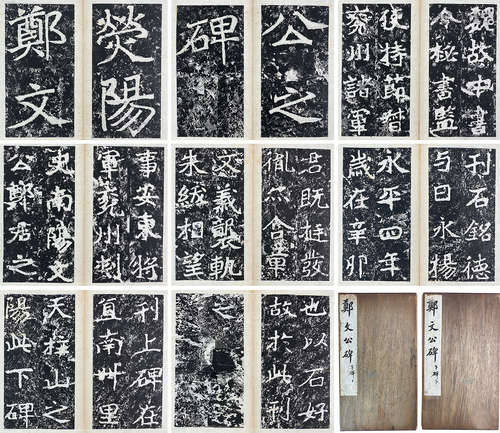 熒陽
鄭文
公之
碑
魏故中書
令秘書監
使持節督
兗州諸軍
事安東將
軍兗州刺
史南陽文
公鄭君之
君既挺發
胤
含章
文義襲軌
朱紱相望
刊石銘德
与日永揚
永平四年
歲在辛卯
刊上碑在
直南卌里
天柱山之
陽此下碑
也以石好
故於此刊
之
鄭文公碑
鄭文公碑